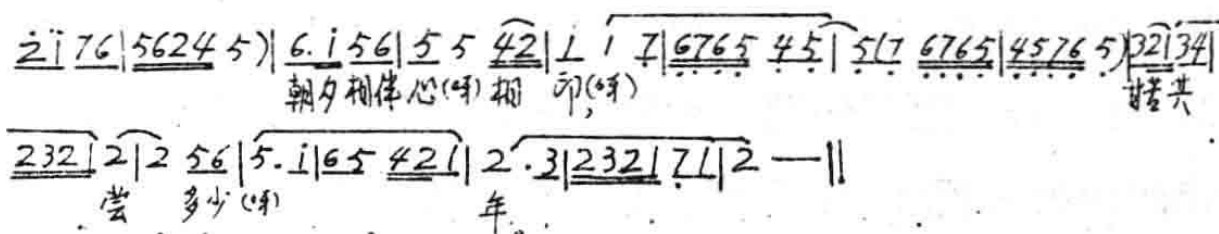 2̇ i̇ 7 6 | 5 6 2 4 5 ) | 6. i̇ 5 6 | 5 5 4 2 | 1 1 7̣ | 6̣ 7̣ 6̣ 5̣ 4̣ 5̣ 1 | 5̣ ( 7̣ 6̣ 7̣ 6̣ 5̣ | 4̣ 5̣ 7̣ 6̣ 5̣ ) | 3 2 1 3 4 |
朝夕相伴心(呀)相 印(呀), 甘苦共
2 3 2 1 2 | 2 5 6 | 5. i̇ | 6 5 4 2 1 | 2. 3 | 2 3 2 1 7̣ 1 | 2 — ‖
尝 多少(呀) 年。